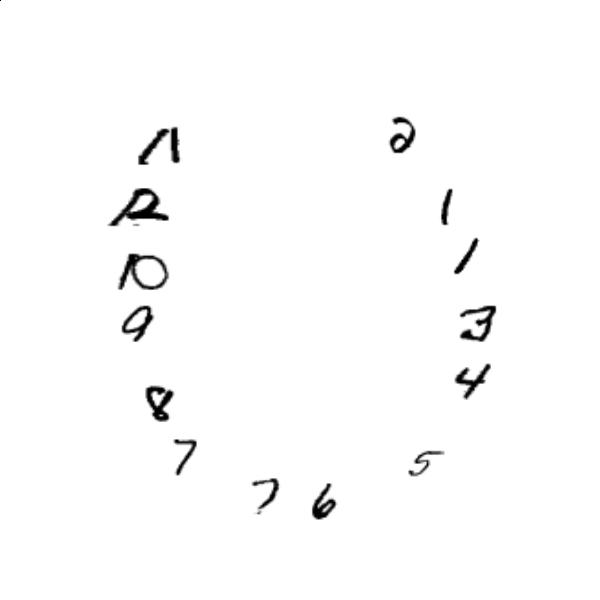 11 2
12 1
10 1
9 3
8 4
7 5
7 6